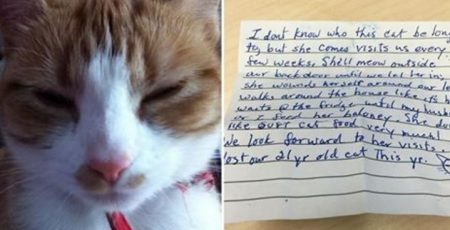 I dont know who this cat be long
to, but she comes visits us every
few weeks. She'll meow outside
our back door until we let her in,
she wounds herself around our le
walks around the house like it's h
waits @ the fridge until my husb
or I feed her boloney. She do
like OUR cat food very much!
We look forward to her visits.
lost our 21 yr old cat this ye.